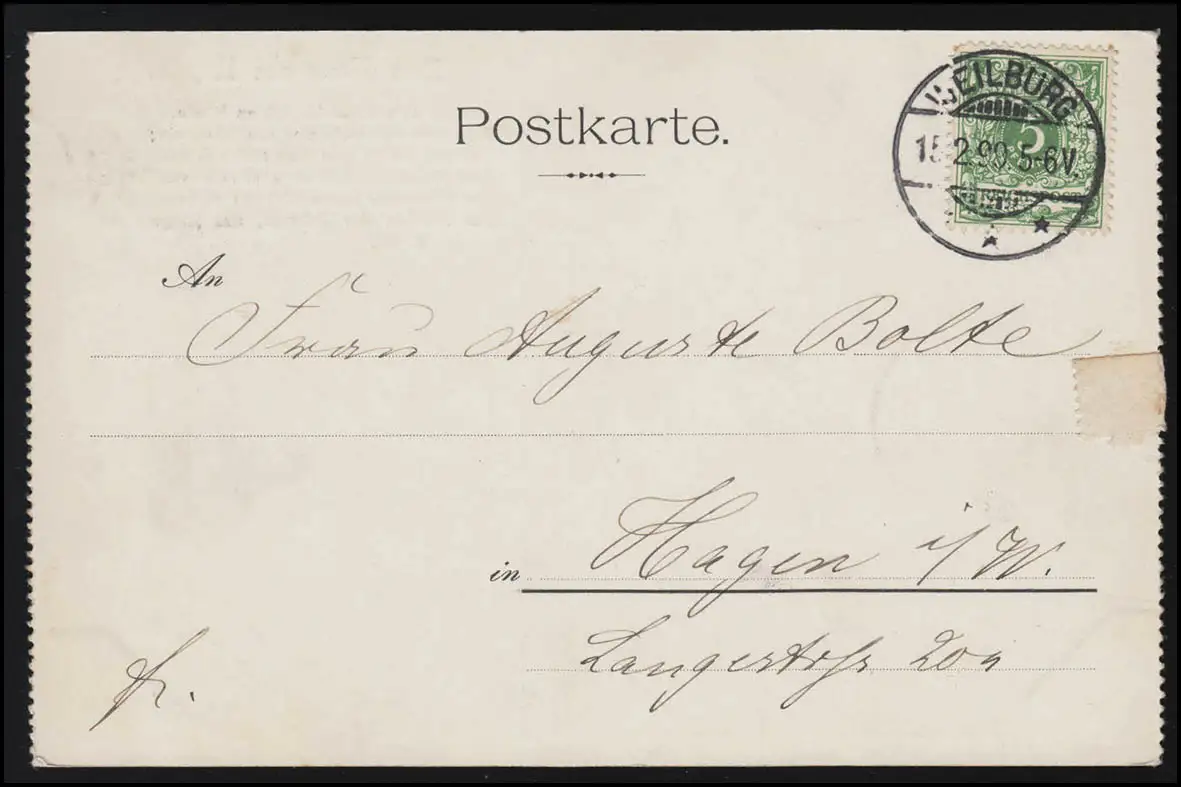 Postkarte.
WEILBURG
15.2.99. 5-6V.
5
An
Frau Auguste Bolte
in Hagen i/W.
Langestrße 20a
fr.